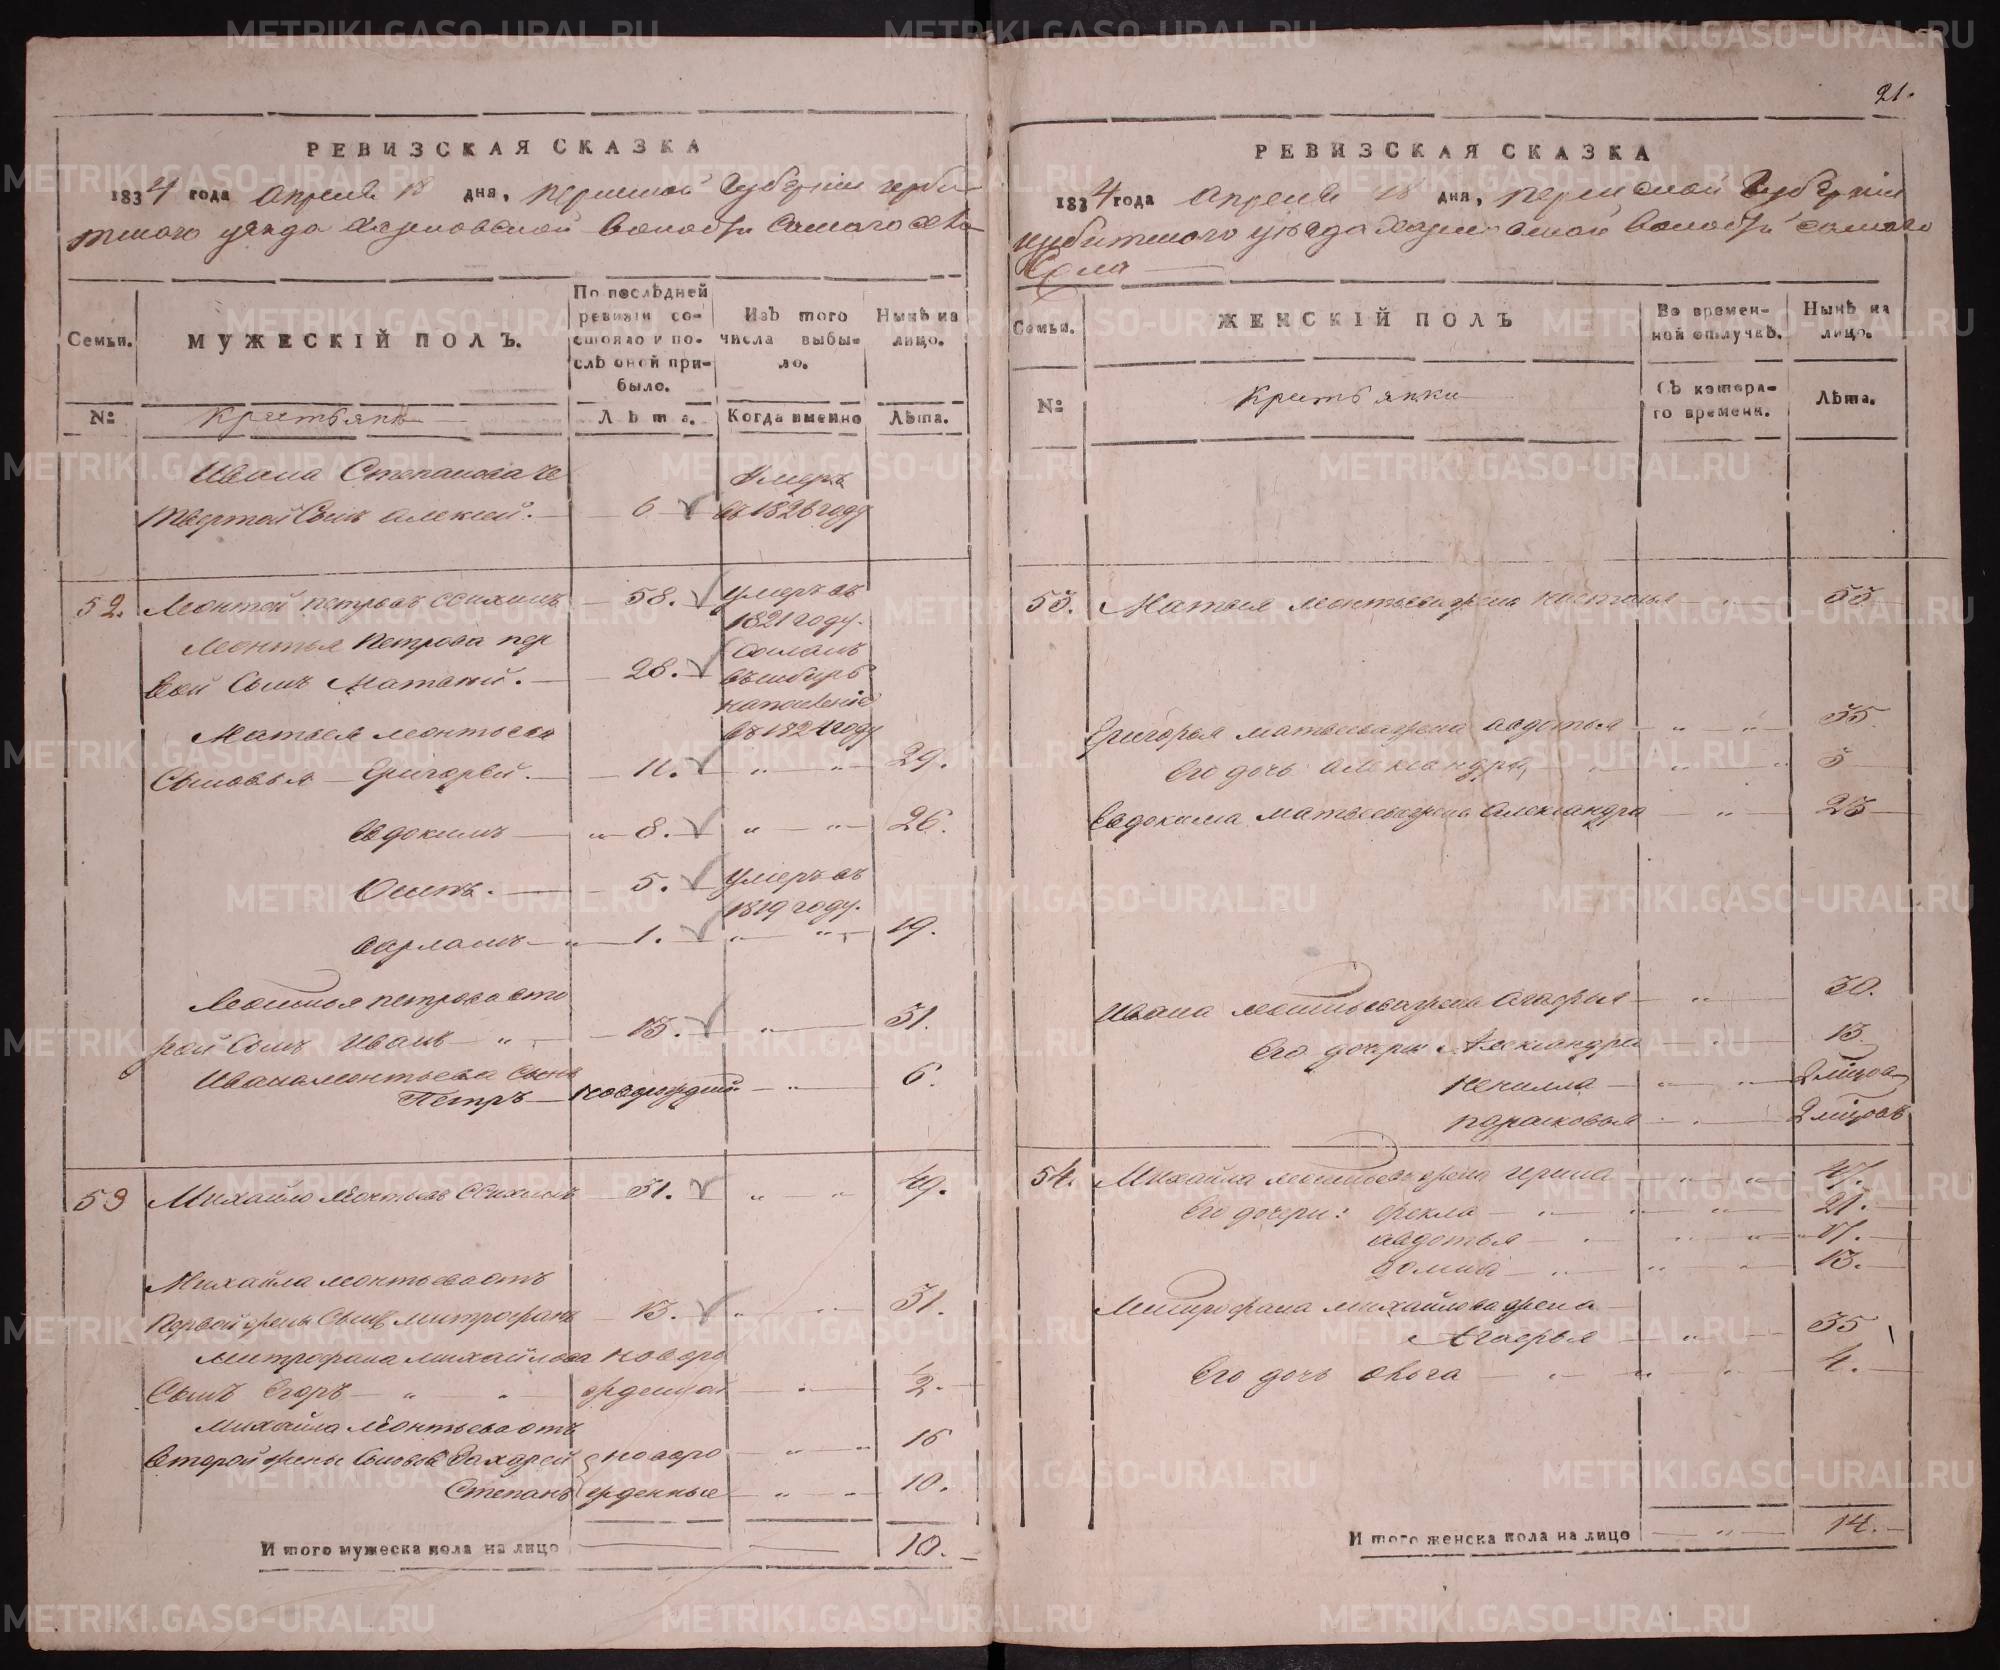 21.
РЕВИЗСКАЯ СКАЗКА
1834 года Апреля 18 дня, Пермской Губернии Ирби-
тского уезда Харловской Волости Самаго Села
Семьи.
МУЖЕСКІЙ ПОЛЪ.
По послѣдней
ревизіи со-
стояло и по-
слѣ оной при-
было.
Изъ того
числа выбы-
ло.
Нынѣ на
лицо.
№
Крестьянъ
Лѣта.
Когда имянно
Лѣта.
Ивана Степанова че
твертой Сынъ Алексей. 6 Умеръ
въ 1826 году
52. Леонтей Петровъ 58. Умеръ въ
1821 году.
Леонтья Петрова пер
вой Сынъ Матвей. 28. Сосланъ
въ Сибирь
на поселеніе
въ 1824 году
Матвея Леонтьева
Сыновья Григорей. 11. 29.
Евдокимъ 8. 26.
Осипъ. 5. Умеръ въ
1819 году.
Варламъ 1. 19.
Леонтья Петрова вто
рой Сынъ Иванъ 13. 31.
Ивана Леонтьева Сынъ
Петръ новорожденный 6.
53 Михайло Леонтьевъ 31. 49.
Михайла Леонтьева отъ
Первой жены Сынъ Митрофанъ 13. 31.
Митрофана Михайлова новоро
Сынъ Егоръ жденной 1/2.
Михайла Леонтьева отъ
Второй жены Сыновья Захарей новоро 16
Степанъ жденные 10.
И того мужеска пола на лицо 10.
РЕВИЗСКАЯ СКАЗКА
1834 года Апреля 18 дня, Пермской Губернии
Ирбитского уезда Харловской Волости самаго
Села
Семьи.
ЖЕНСКІЙ ПОЛЪ
Во времен-
ной отлучкѣ.
Нынѣ на
лицо.
№
Крестьянки
Съ котора-
го времени.
Лѣта.
53. Матвея Леонтьева жена Настасья 53
Григорья Матвеева жена Авдотья 35.
Его дочь Александра 3
Евдокима Матвеева жена Александра 23
Ивана Леонтьева жена Агафья 30.
Его дочери Александра 13.
Ненилла
Парасковья
54. Михайла Леонтьева жена Ирина 47.
Его дочери: Фекла 21.
Авдотья 17.
Домна 13.
Митрофана Михайлова жена
Агафья 35
Его дочь 4.
И того женска пола на лицо 14.
METRIKI.GASO-URAL.RU